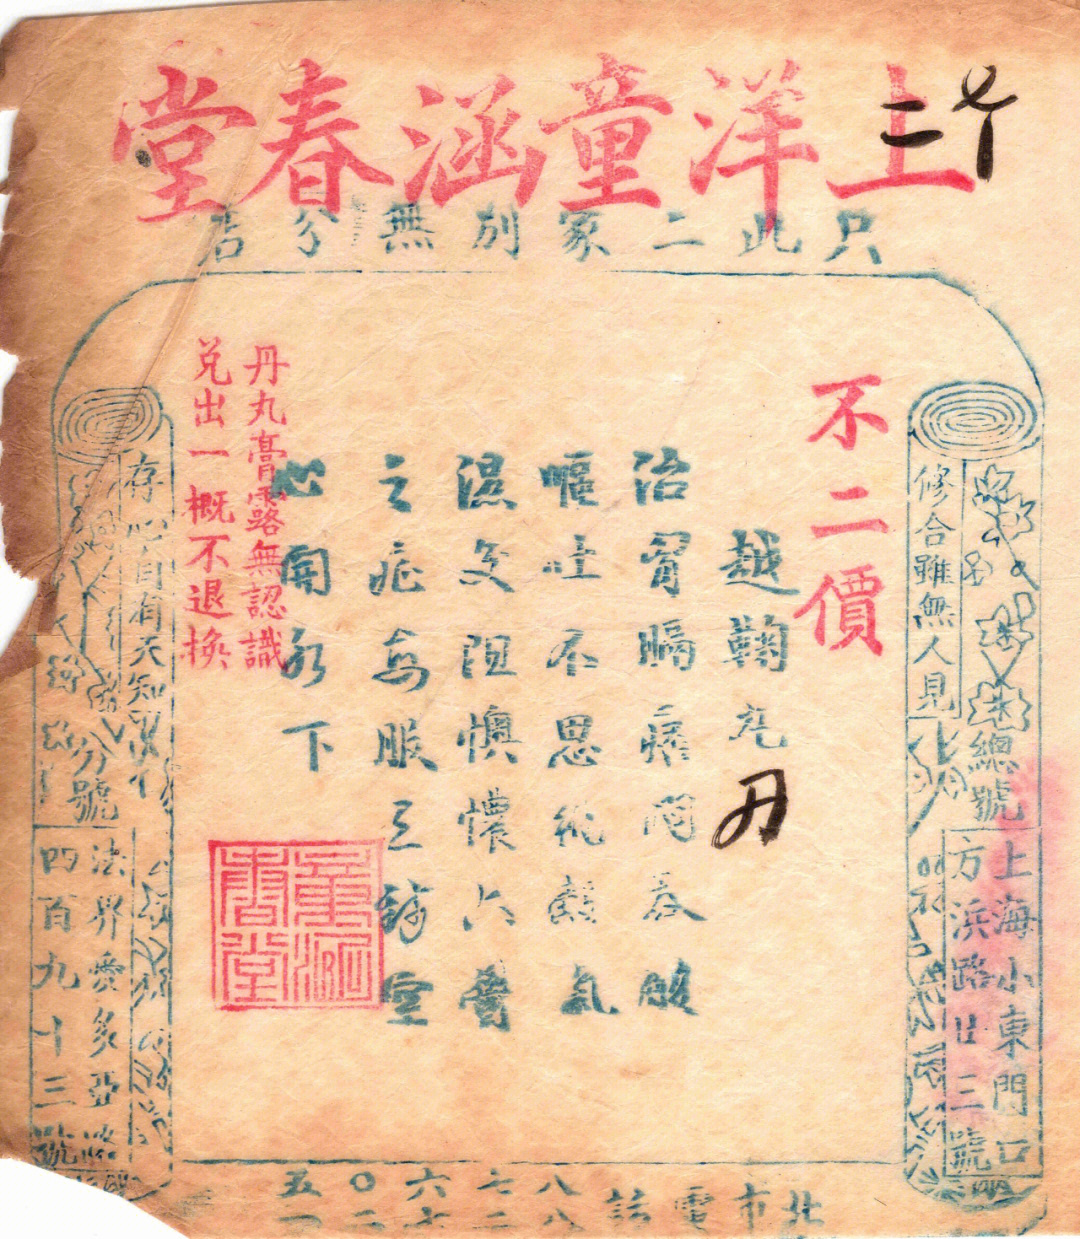 上洋童涵春堂
只此二家別無分店
不二價
越鞠丸
治胃膈痞悶吞酸
嘔吐不思納穀氣
濕交阻懊憹六鬱
之症每服三錢空
心開水下
丹丸膏露無認識
兌出一概不退換
童涵春堂
修合雖無人見
存心自有天知
總號
上海小東門口
方浜路廿三號
分號
法界愛多亞路
四百九十三號
北市電話
八七六〇五